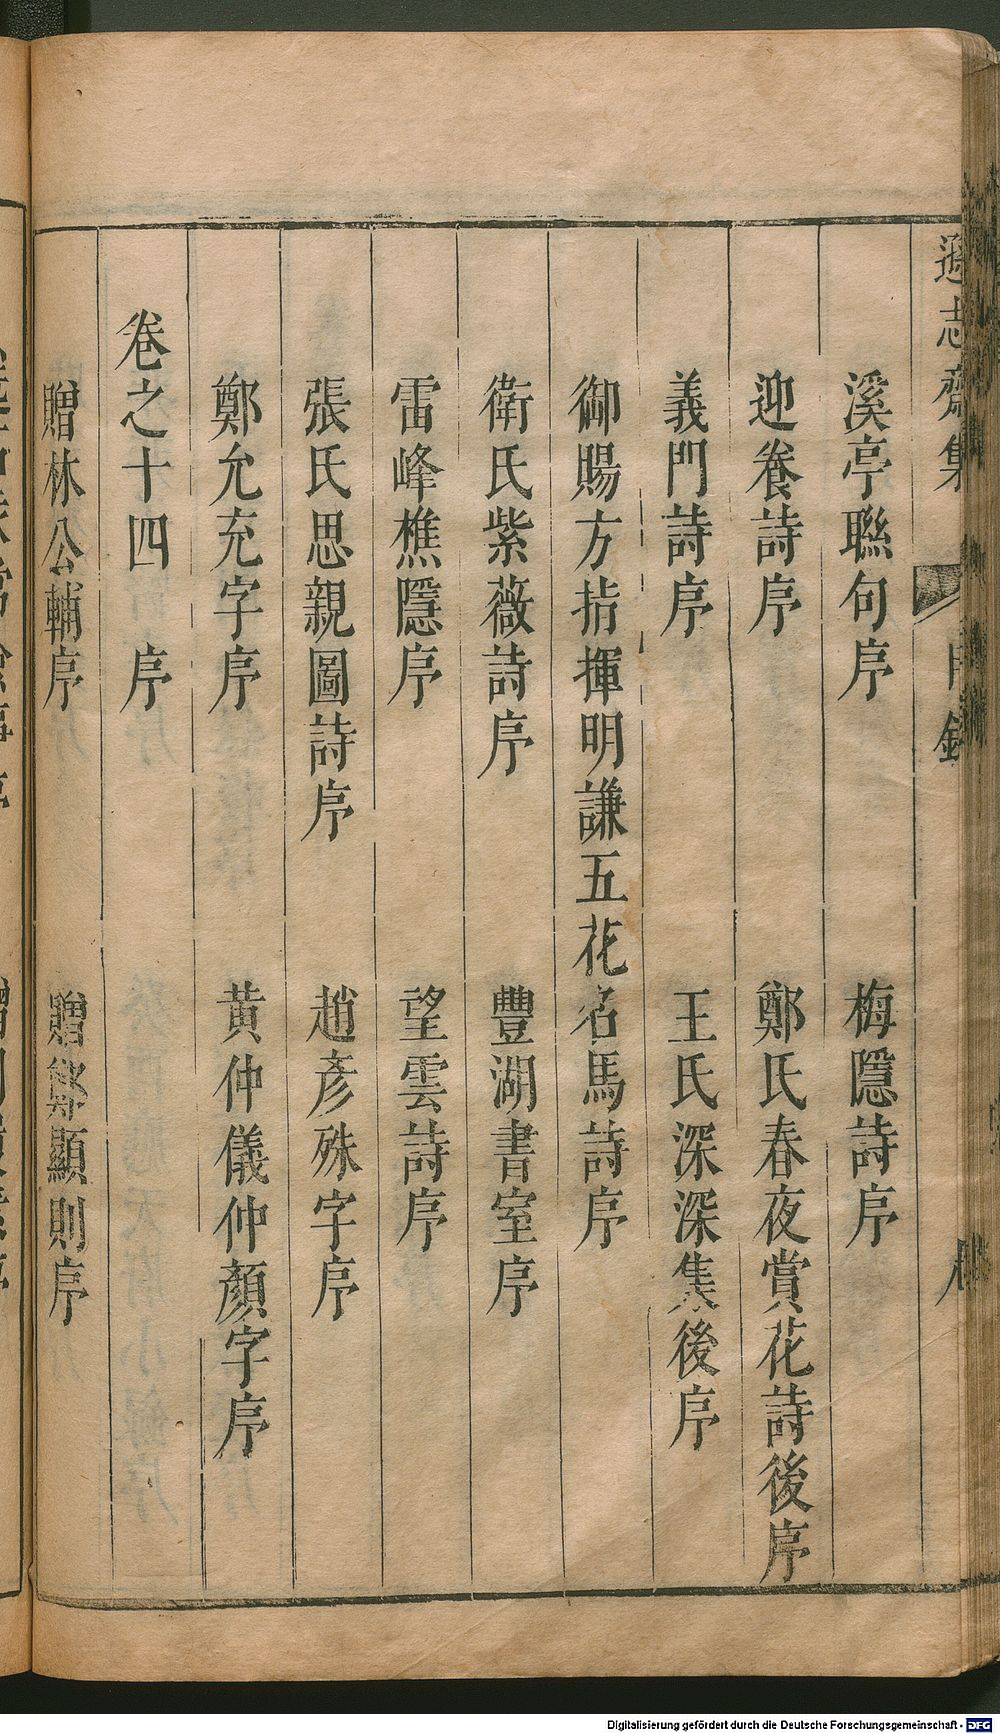 遜志齋集
目錄
溪亭聯句序 梅隱詩序
迎養詩序 鄭氏春夜賞花詩後序
義門詩序 王氏深深集後序
御賜方指揮明謙五花名馬詩序
衛氏紫薇詩序 豐湖書室序
雷峰樵隱序 望雲詩序
張氏思親圖詩序 趙彥殊字序
鄭允充字序 黃仲儀仲顏字序
卷之十四 序
贈林公輔序 贈鄭顯則序
Digitalisierung gefördert durch die Deutsche Forschungsgemeinschaft - DFG